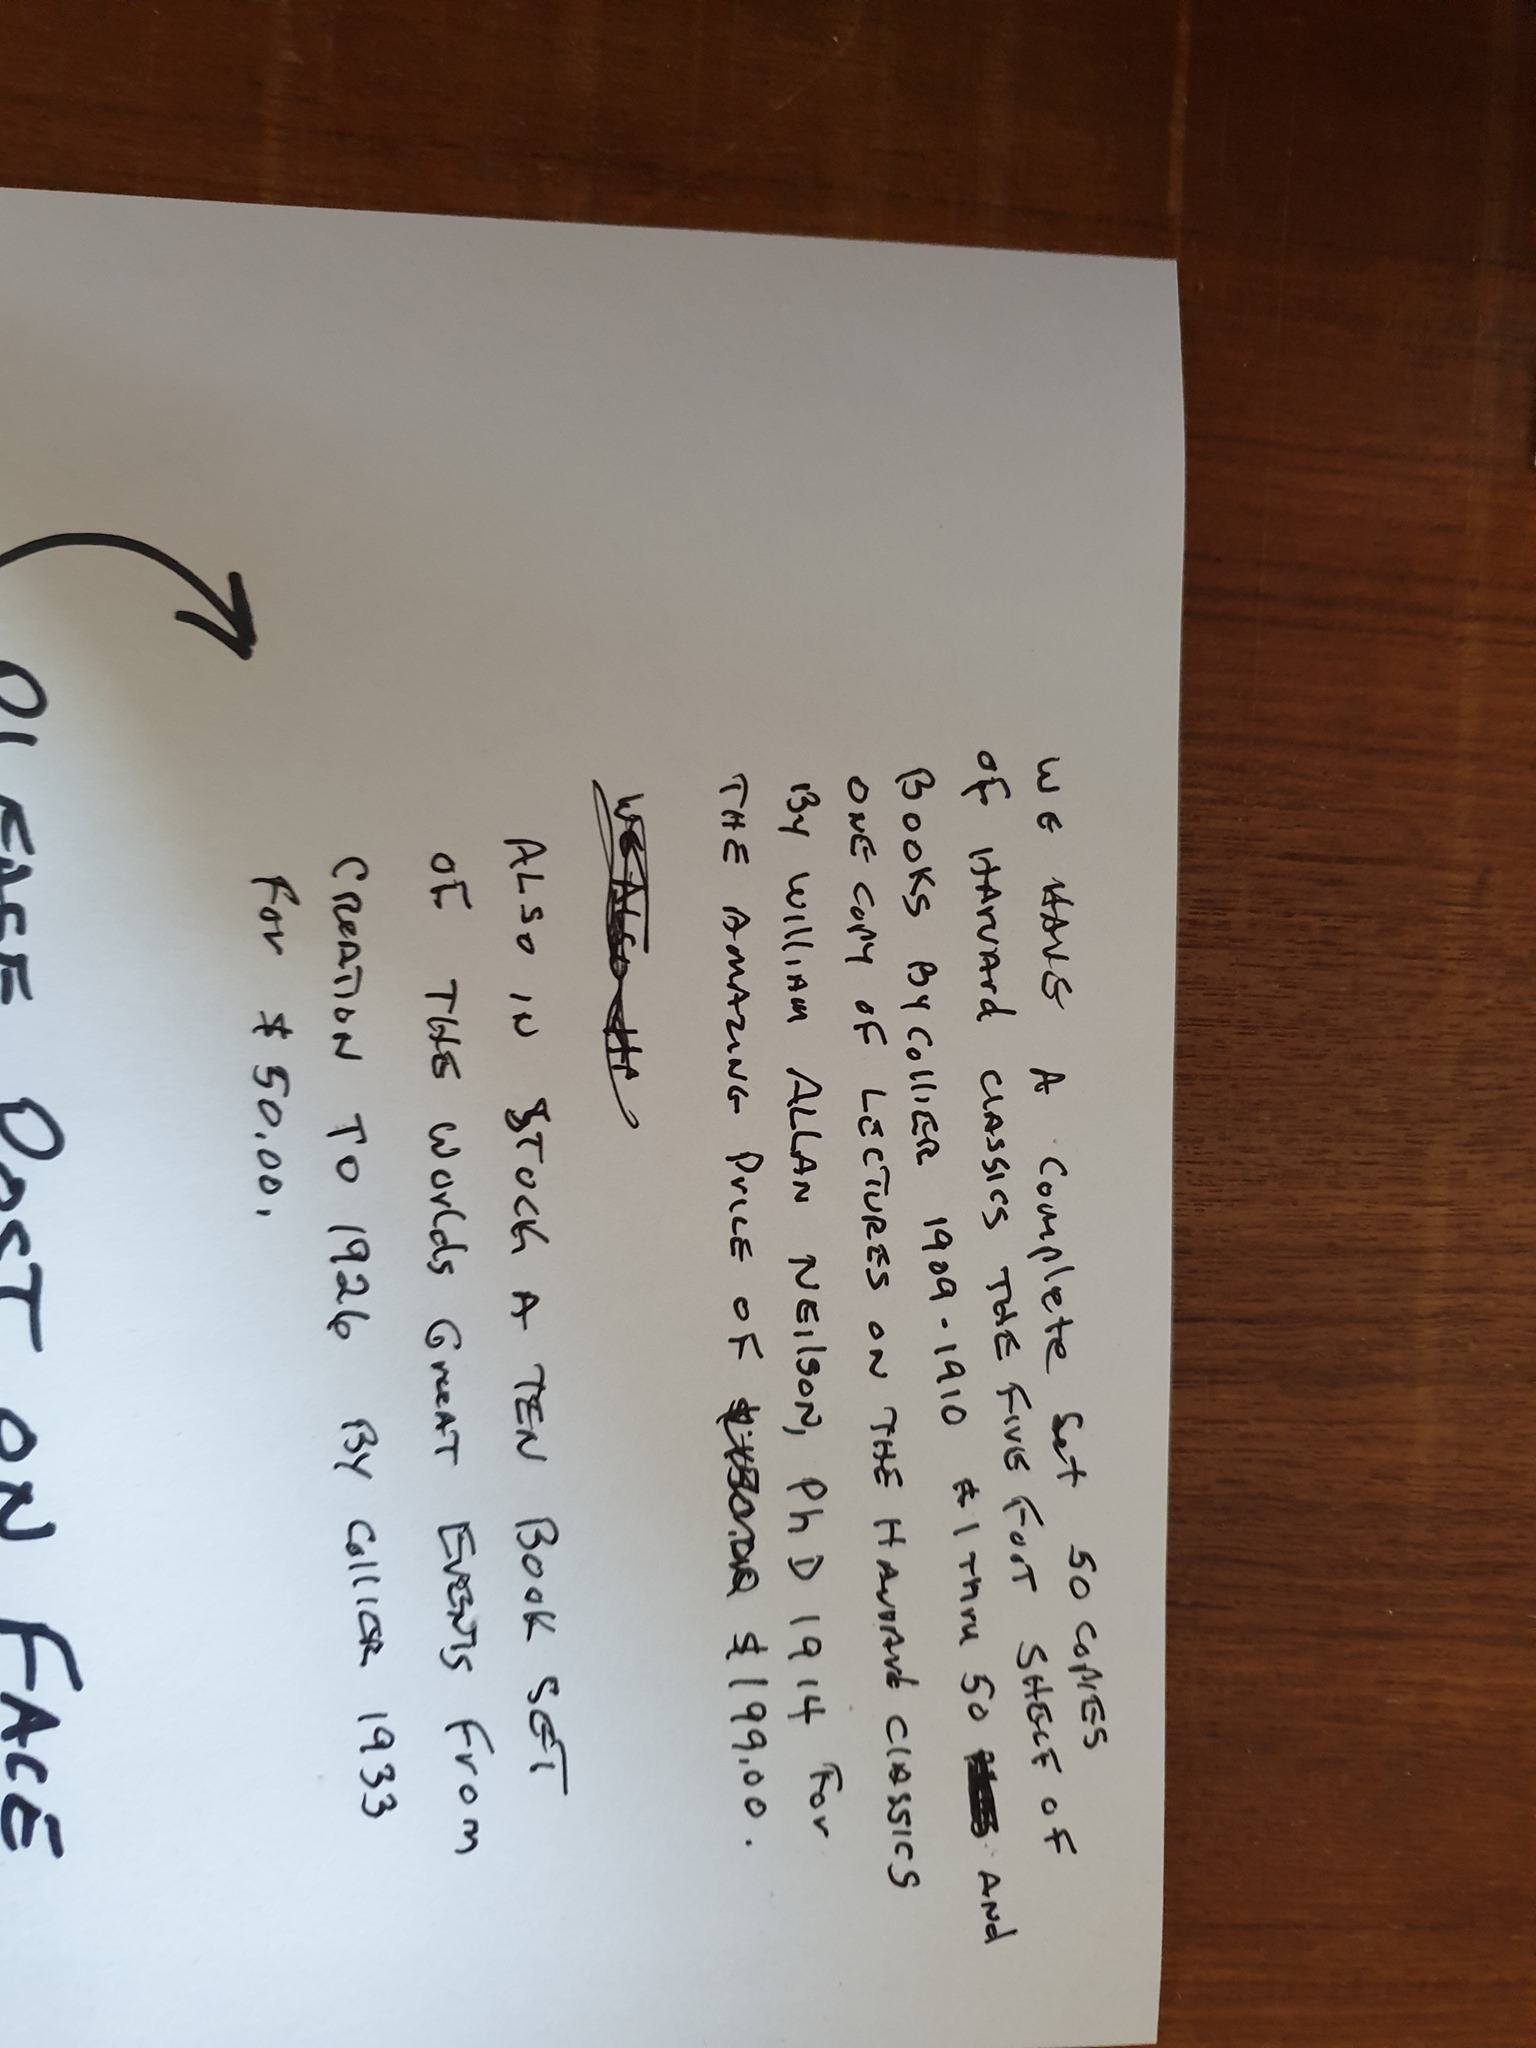 WE HAVE A Complete Set 50 COPIES
OF HARVARD CLASSICS THE FIVE FOOT SHELF OF
BOOKS BY COLLIER 1909-1910 #1 THRU 50 AND
ONE COPY OF LECTURES ON THE HARVARD CLASSICS
BY WILLIAM ALLAN NEILSON, PhD 1914 FOR
THE AMAZING PRICE OF $199.00.
WE ALSO HA
ALSO IN STOCK A TEN BOOK SET
OF THE WORLDS GREAT EVENTS FROM
CREATION TO 1926 BY COLLIER 1933
FOR $50.00.
PLEASE POST ON FACE